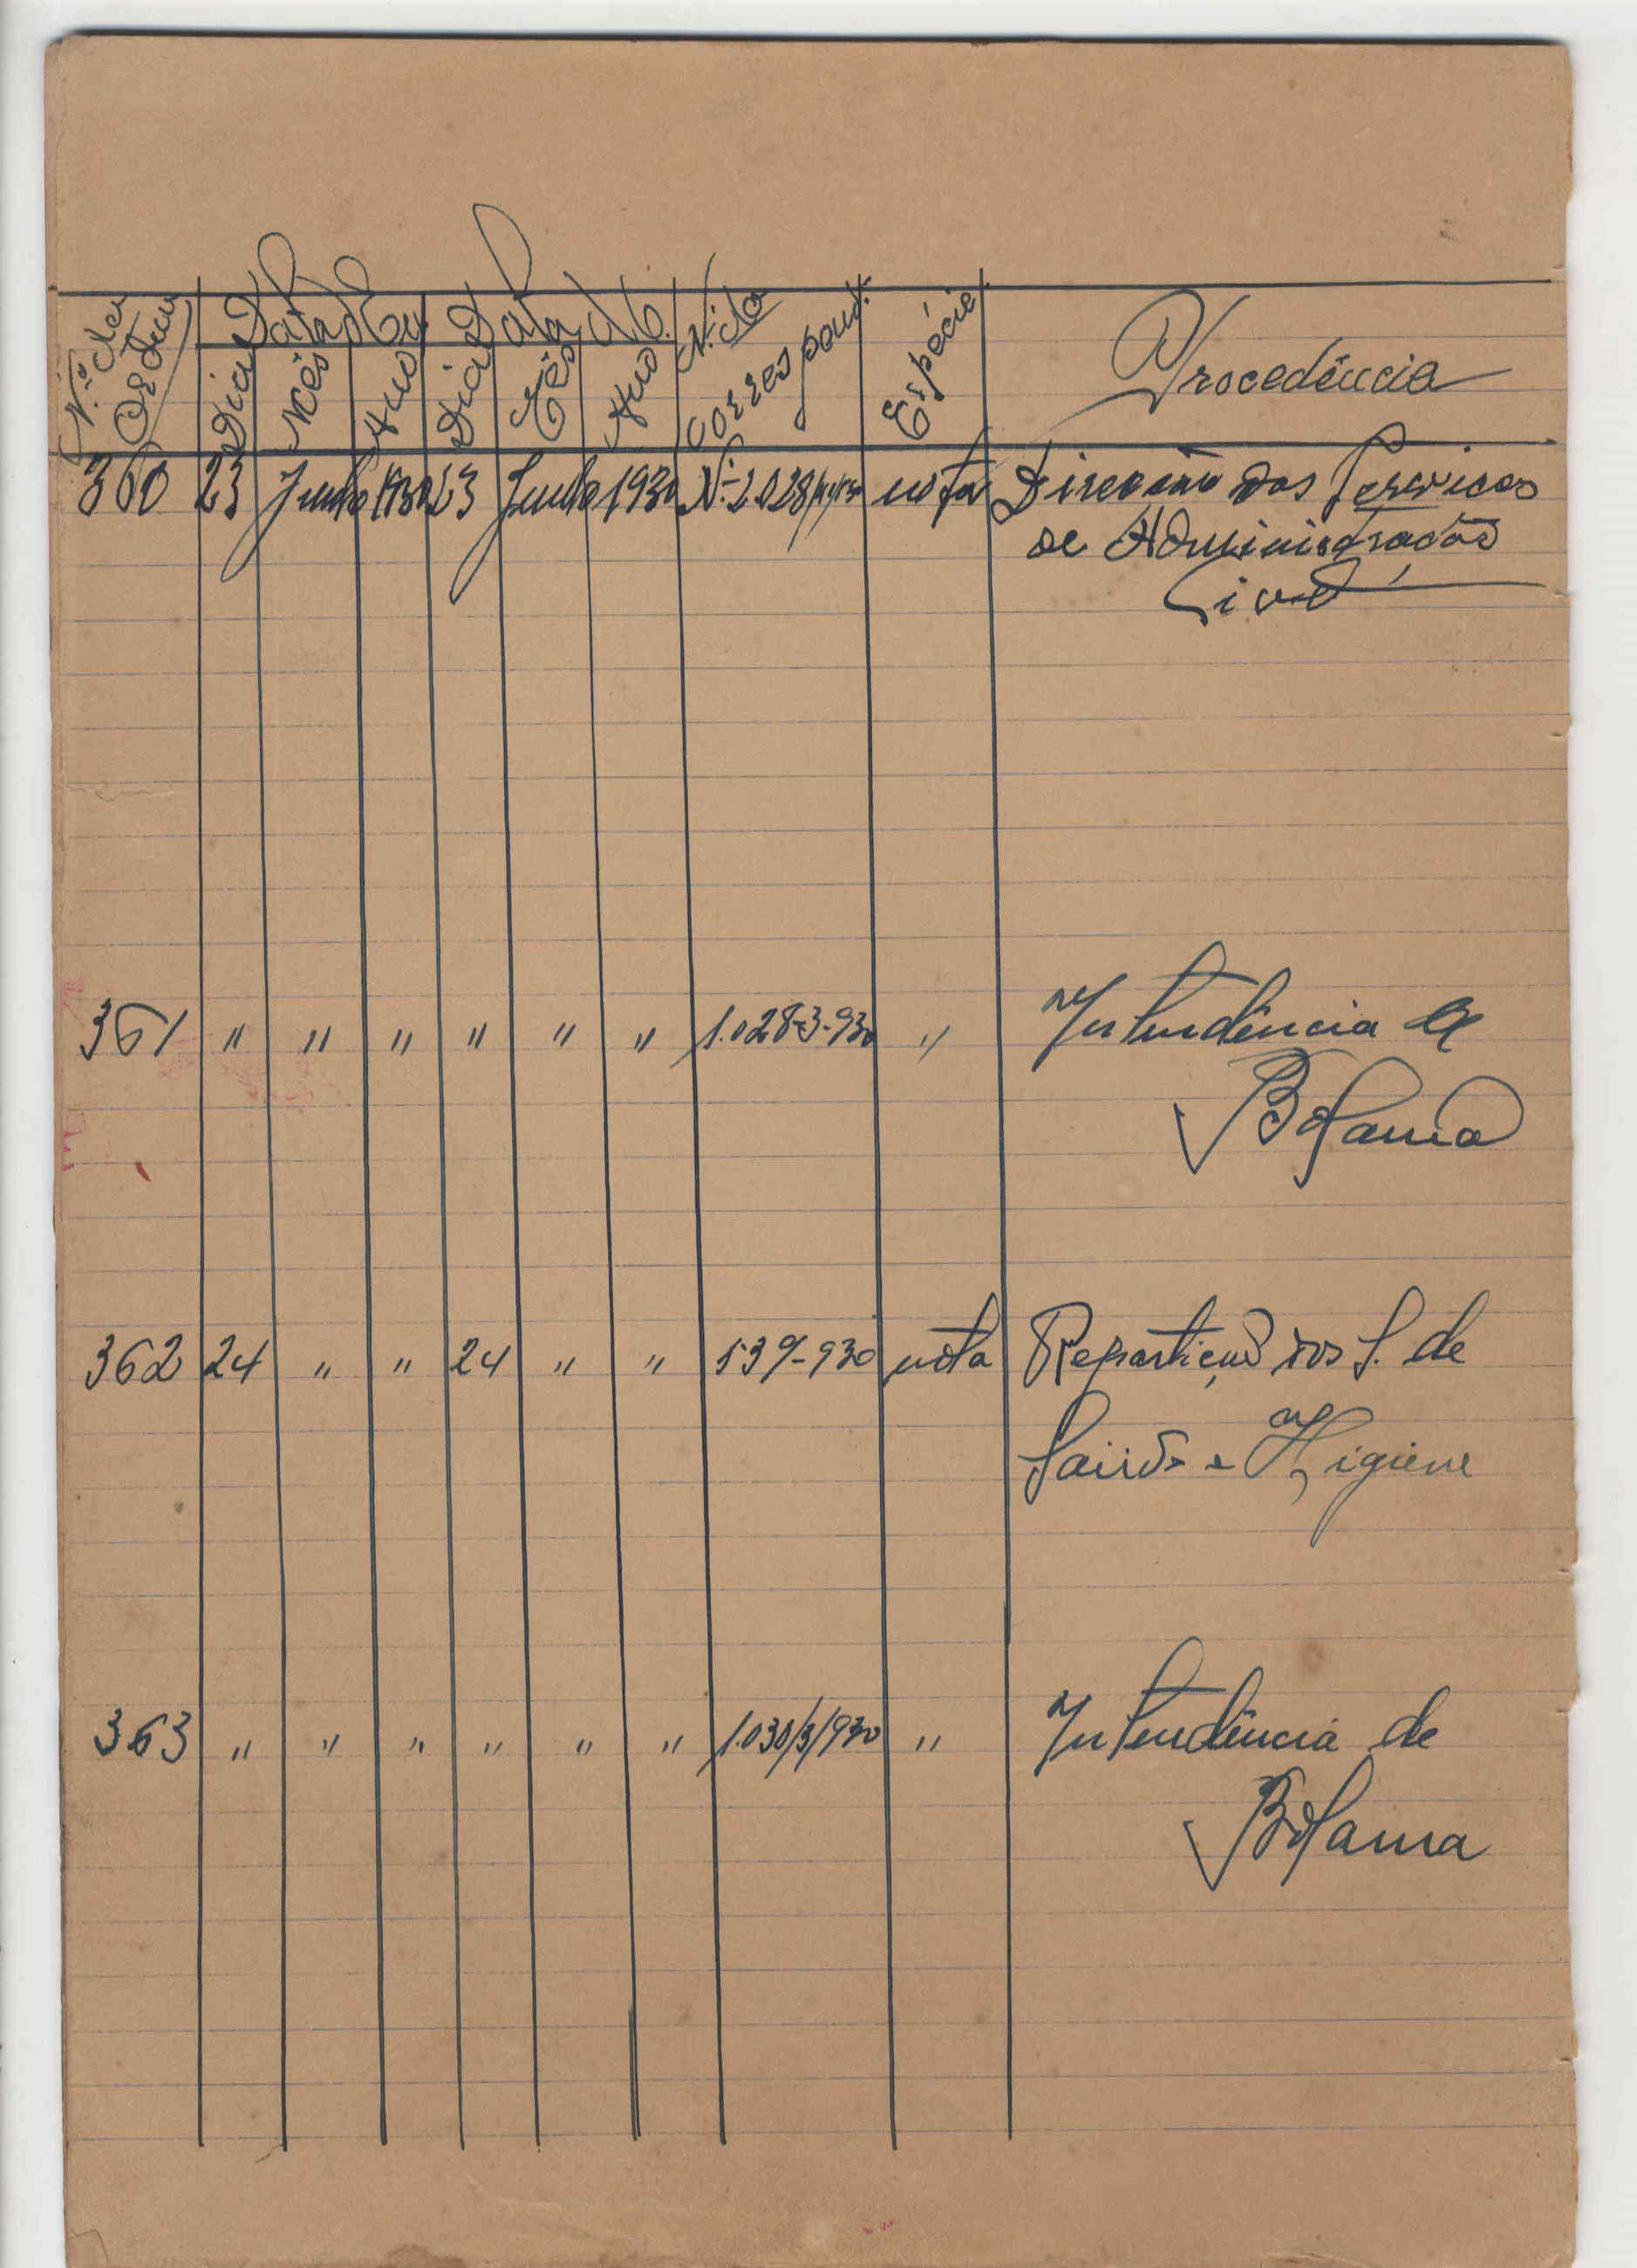 N.º de Ordem
Data
Data
Dia Mês Ano Dia Mês Ano
N.º do correspond.
Espécie
Procedência
360 23 Junho 1930 23 Junho 1930 N.º 2.028 nota Direcção dos Serviços
de Administração
Civil
361 " " " " " " 1.028-3-930 " Intendência de
Bolama
362 24 " " 24 " " 539-930 nota Repartição dos S. de
Saúde e Higiene
363 " " " " " " 1.030/3/930 " Intendência de
Bolama